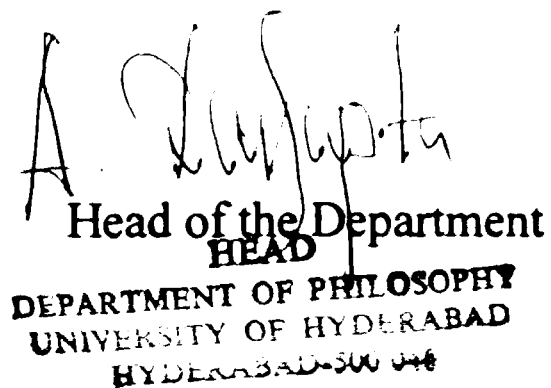 A. DasGupta
Head of the Department
HEAD
DEPARTMENT OF PHILOSOPHY
UNIVERSITY OF HYDERABAD
HYDERABAD-500 046